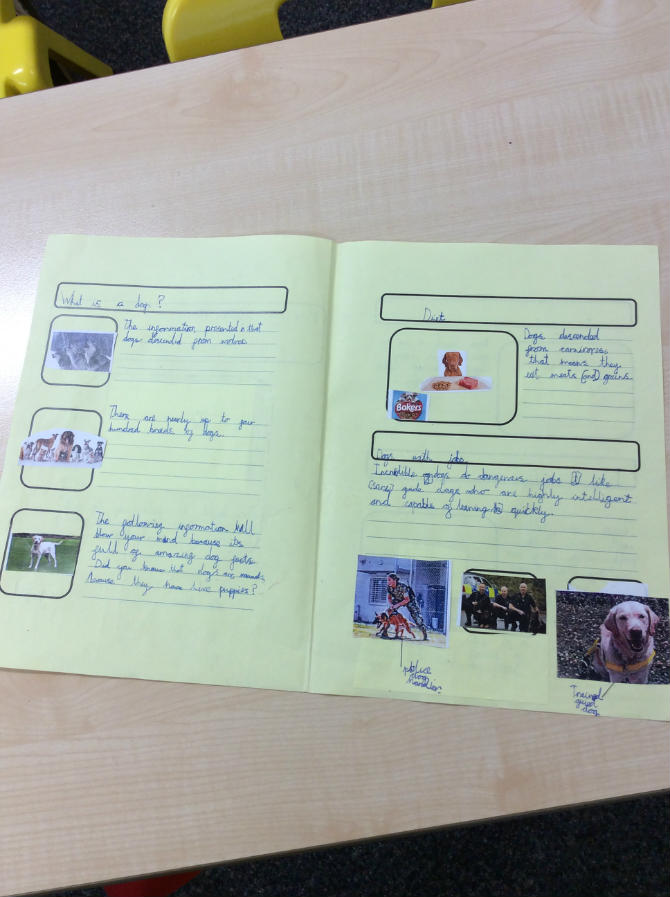 What is a dog ?
The information presented is that
dogs descended from wolves.
There are purly up to four
hundred breeds of dogs.
The following information will
blow your mind because its
full of amazing dog facts.
Did you know that dogs are mamals
because they have live puppies?
Diet
Dogs descended
from carnivores,
that means they
eat meats (and) grains.
Bakers
Dogs with jobs
Incredible dogs do dangerous jobs like
guide dogs who are highly intelligent
and capable of learning quickly.
police
dog
handler.
Trained
guied
dog